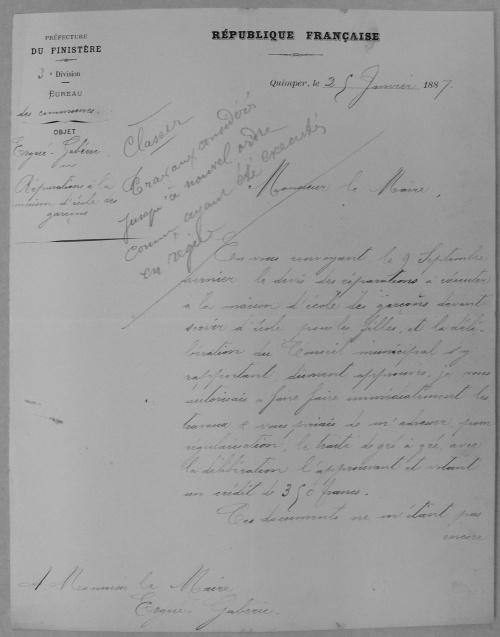 PRÉFECTURE
DU FINISTÈRE
3e Division
BUREAU
des communes
OBJET
Ergué-Gabéric
Réparations à la
maison d'école des
garçons
RÉPUBLIQUE FRANÇAISE
Quimper, le 25 Janvier 1887.
Classer
Travaux considérés
jusqu'à nouvel ordre
comme ayant été exécutés
en régie
Monsieur le Maire,
En vous renvoyant le 9 Septembre
dernier le devis des réparations à exécuter
à la maison d'école des garçons devant
servir d'école pour les filles, et la déli-
bération du Conseil municipal s'y
rapportant dûment approuvés, je vous
autorisais à faire faire immédiatement les
travaux & vous priais de m'adresser, pour
régularisation, le traité de gré à gré, avec
la délibération l'approuvant et votant
un crédit de 350 francs.
Ces documents ne m'étant pas
encore
A Monsieur le Maire
Ergué-Gabéric.